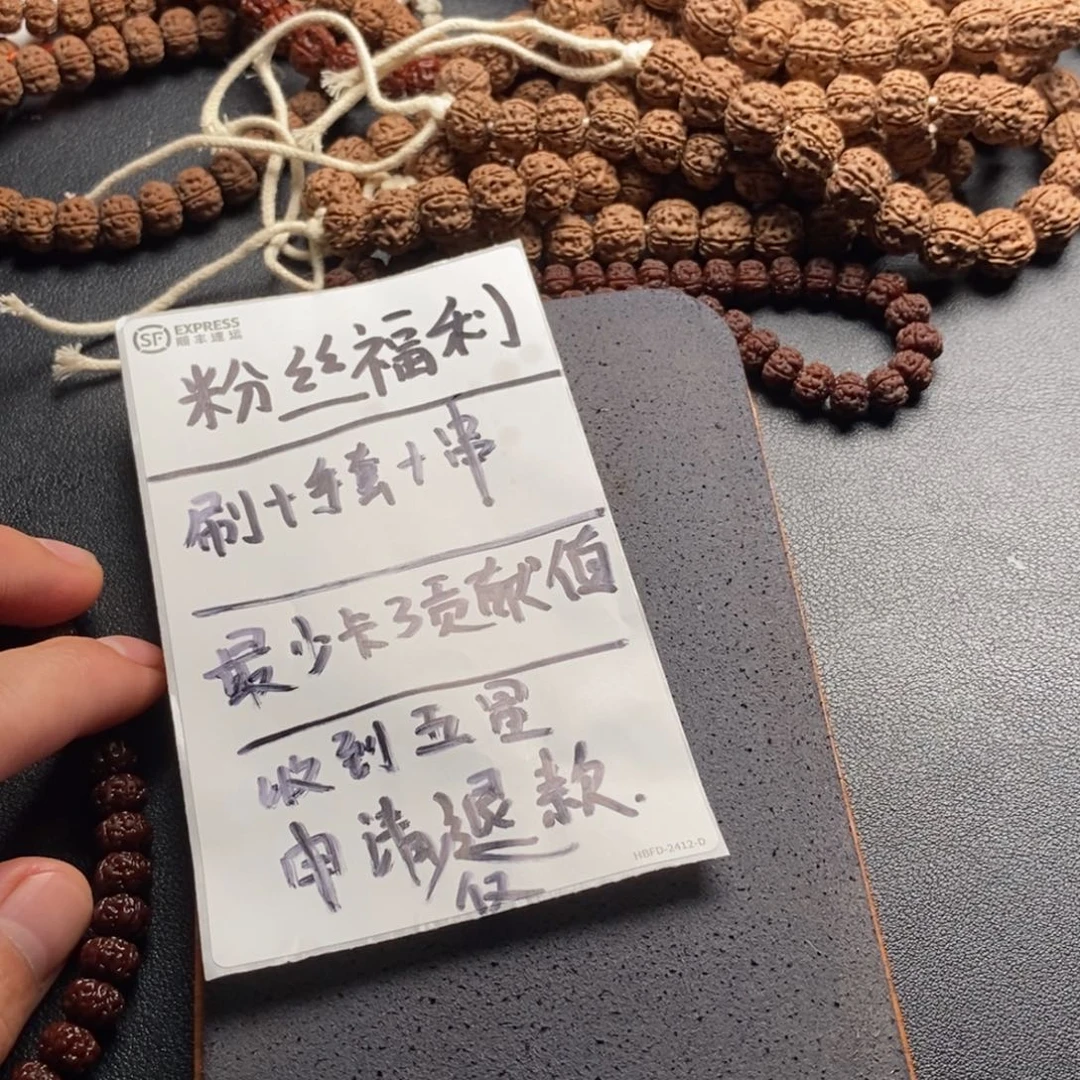 SF EXPRESS
顺丰速运
粉丝福利
刷+手套+串
最少卡3贡献值
收到五星
申请退款
仅
HBFD-2412-D